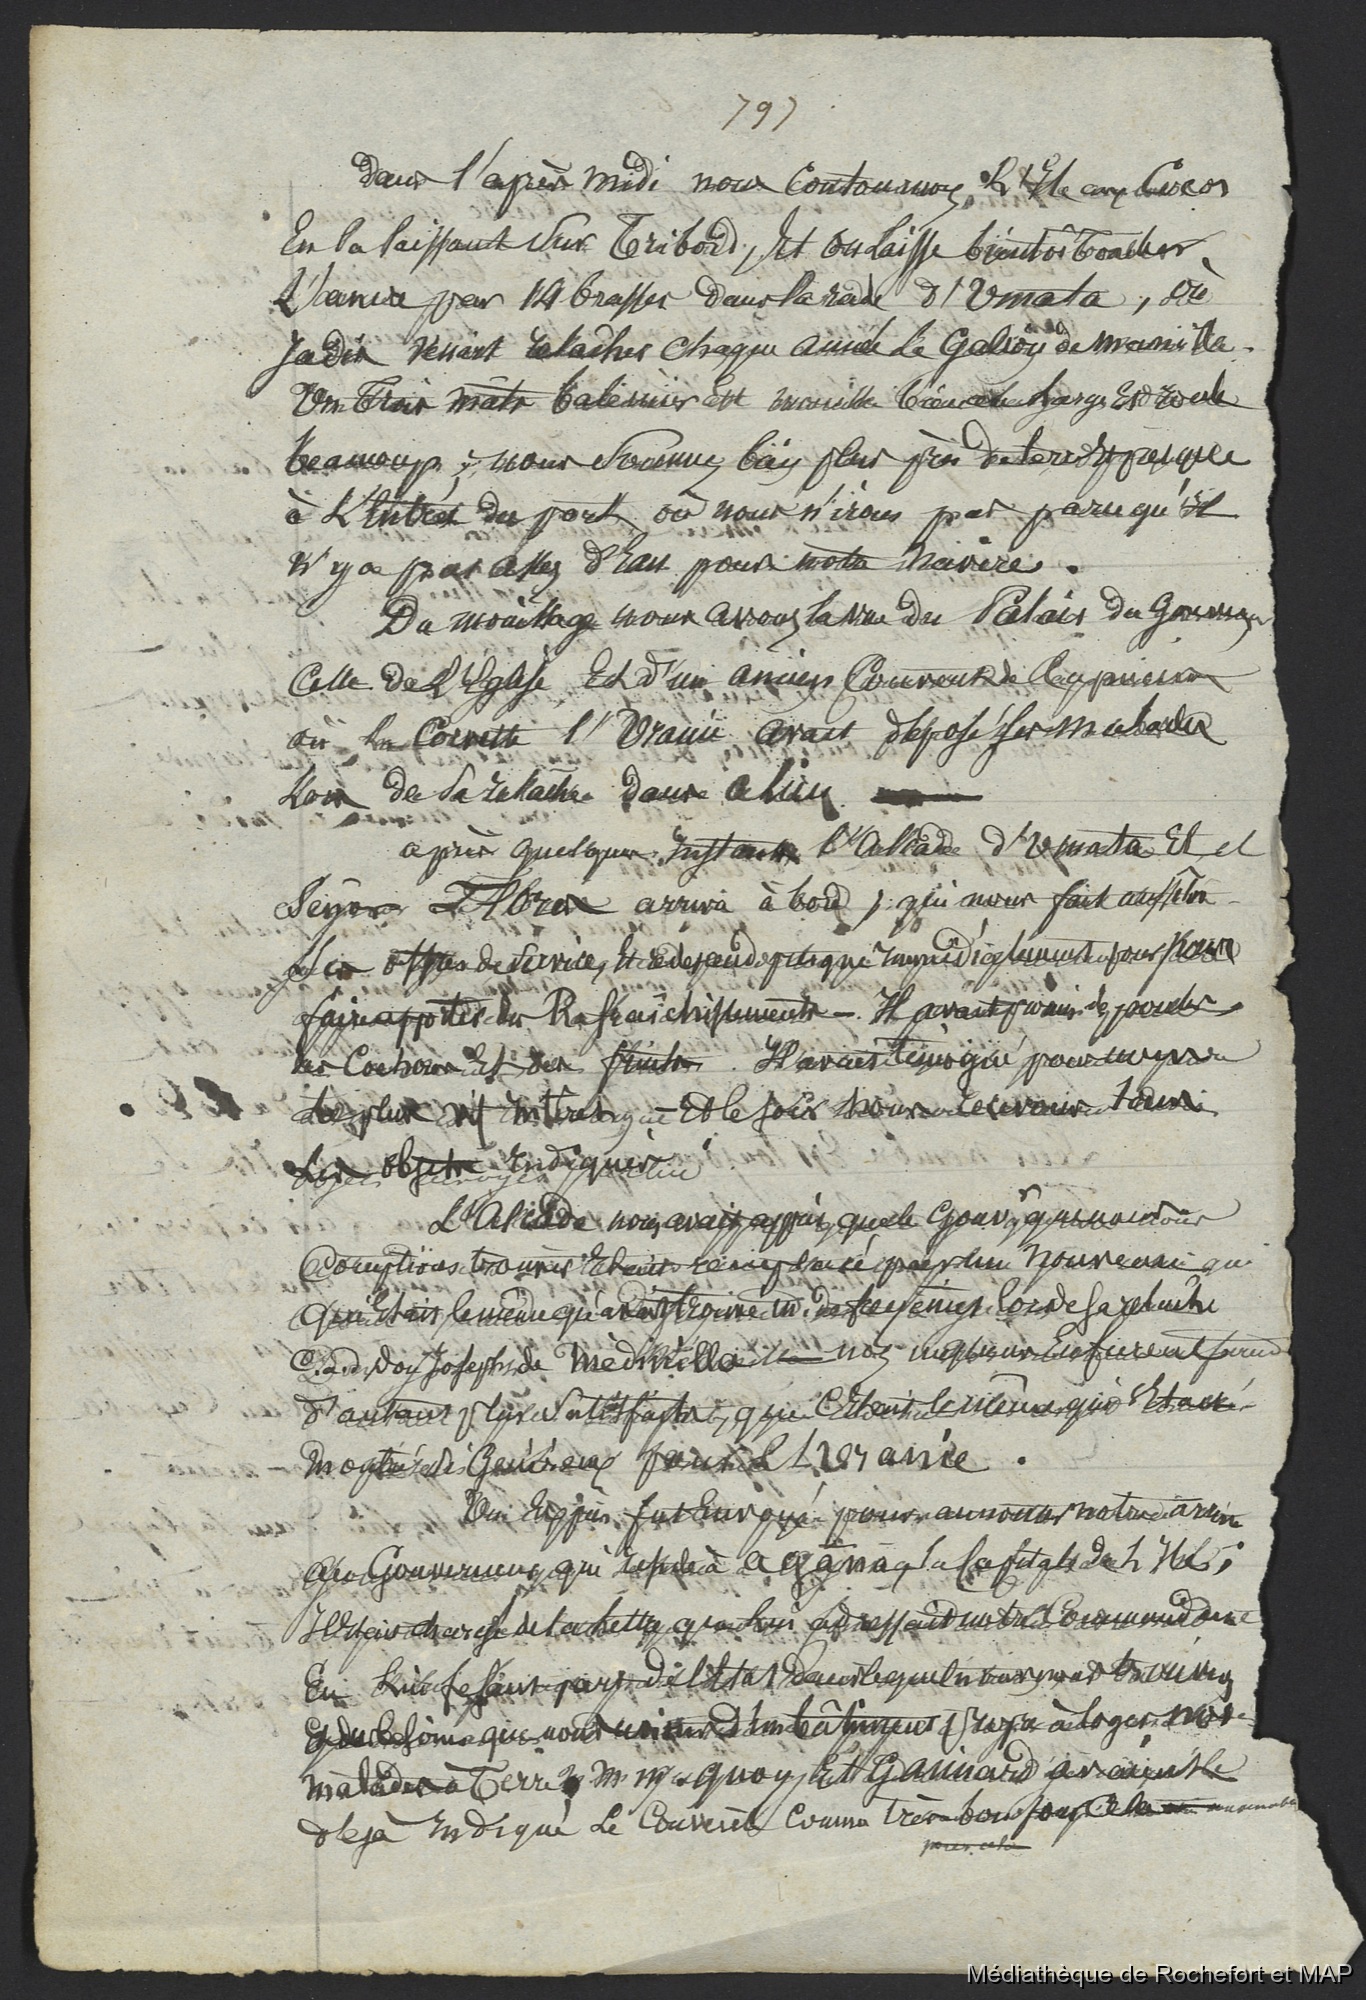 797
Dans l'après midi nous contournons L'Ile aux Cocos
En la laissant sur Tribord, Et on laisse bientôt tomber
L'ancre par 14 brasses dans la rade d'Umata, où
Jadis venait relacher chaque année le Galion de Manille.
Un Trois mâts balennier est mouillé bien au large Et roule
beaucoup; nous sommes bien plus près de terre Et presque
à L'Entrée du port où nous n'irons pas parcequ'il
n'y a pas assez d'Eau pour notre Navire.
Du mouillage nous avons la vue du Palais du Gouverneur
Celle de L'Eglise Et d'un ancien Couvent de Capucins
où la Corvette l'Uranie avait déposé ses malades
Lors de sa relâche dans ce lieu
après quelques Instants l'Alcade d'Umata Et el
Segnor Flores arriva à bord, qui nous fait aussitôt
ses offres de Service, Et redescend presque immédiatement pour nous
faire apporter des Rafraichissements — Il avait promis des poules,
des Cochons Et des fruits. Il avait témoigné pour nous
le plus vif intérêt — Et le soir nous recevons tous
Les objets Indiqués
L'Alcade nous avait appris que le Gouvr que nous
comptions trouver Etait remplacé par un Nouveau qui
qui Etait le même qu'avait trouvé M. de Freycinet lors de sa relâche
C.a.d. Don Joseph de Médinilla nos messieurs En furent
d'autant plus satisfaits, que C'Etait le même qui s'Etait
montré si Généreux pour L'Uranie.
Un Exprès fut Envoyé pour annoncer notre arrivée
au Gouverneur qui reside à Agagna la Capitale de L'Ile;
Il Etait chargé de la lettre que lui adressait notre Commandant
En Lui fesant part de l'Etat dans lequel nous nous trouvions
Et du besoin que nous avions d'un bâtiment propre à loger nos
malades à Terre Mrs Quoy Et Gaimard avaient
déjà Indiqué Le Couvent comme très bon pour cela
pour cela
Médiathèque de Rochefort et MAP